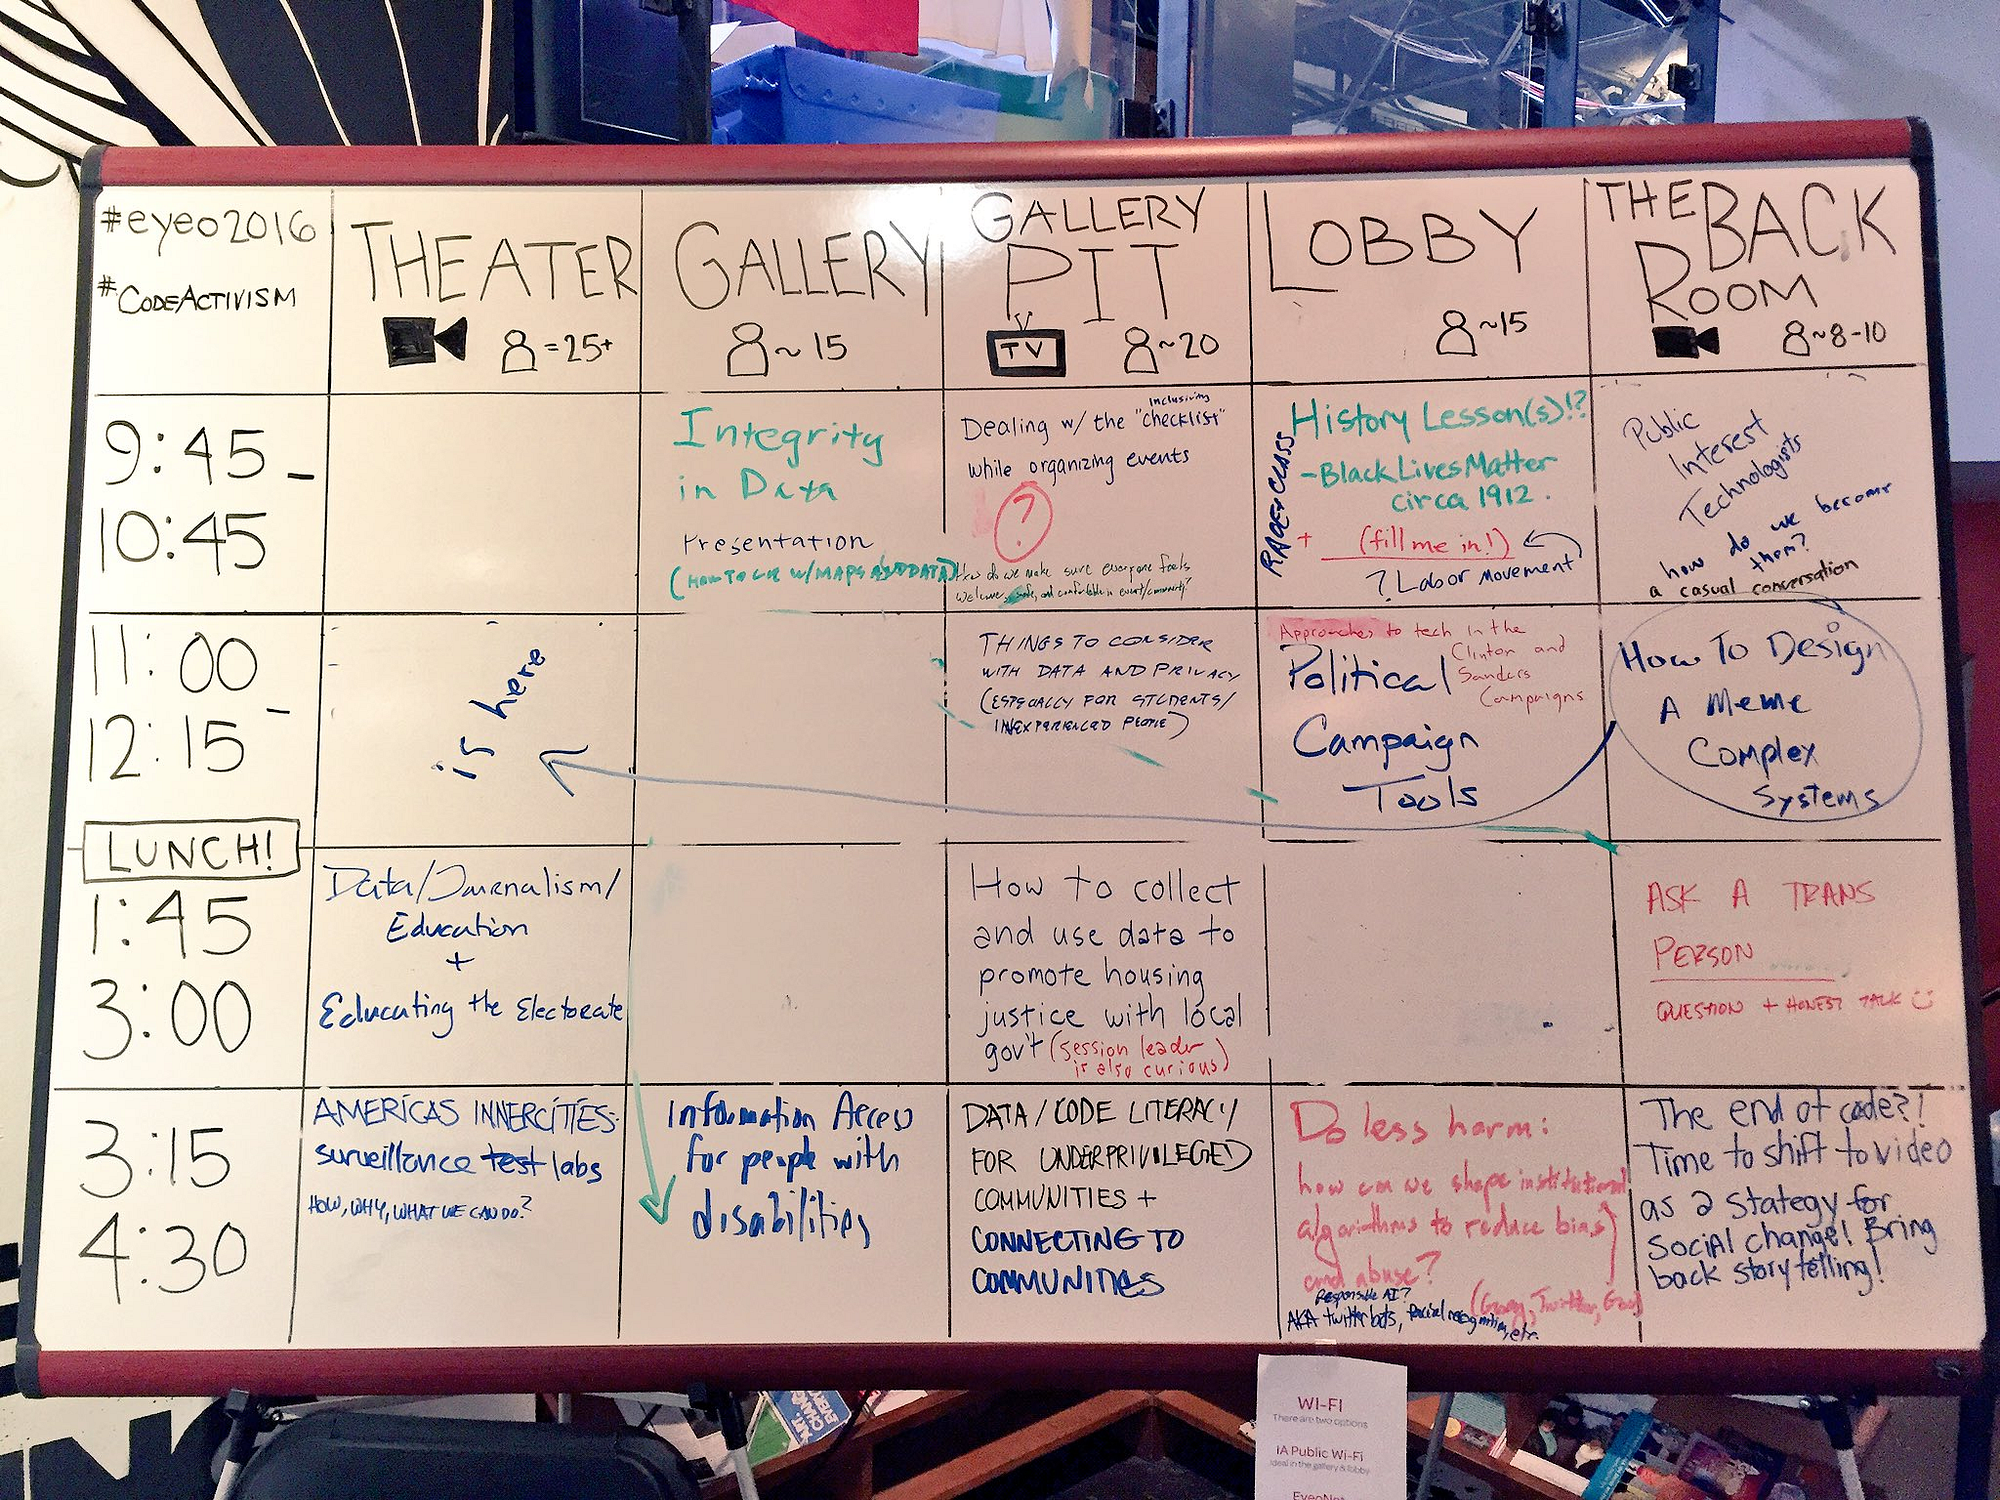 #eyeo2016
#CODEACTIVISM
THEATER
=25+
GALLERY
~15
GALLERY
PIT
TV
~20
LOBBY
~15
THE BACK
ROOM
~8-10
9:45 -
10:45
Integrity
in Data
Presentation
(HOW TO LIE W/MAPS AND DATA)
Inclusivity
Dealing w/ the "checklist"
while organizing events
?
How do we make sure everyone feels
welcome, safe, and comfortable in event/community?
RACE + CLASS
History Lesson(s)!?
- Black Lives Matter
circa 1912.
+ (fill me in!)
? Labor movement
Public
Interest
Technologists
how do we become
them?
a casual conversation
11:00
12:15 -
is here
THINGS TO CONSIDER
WITH DATA AND PRIVACY
(ESPECIALLY FOR STUDENTS/
INEXPERIENCED PEOPLE)
Approaches to tech in the
Clinton and
Sanders
Campaigns
Political
Campaign
Tools
How To Design
A Meme
Complex
Systems
LUNCH!
1:45
3:00
Data/Journalism/
Education
+
Educating the Electorate
How to collect
and use data to
promote housing
justice with local
gov't (session leader
is also curious)
ASK A TRANS
PERSON
QUESTION + HONEST TALK
3:15
4:30
AMERICAS INNERCITIES:
surveillance test labs
HOW, WHY, WHAT WE CAN DO?
Information Access
for people with
disabilities
DATA/CODE LITERACY
FOR UNDERPRIVILEGED
COMMUNITIES +
CONNECTING TO
COMMUNITIES
Do less harm:
how can we shape institutional
algorithms to reduce bias
and abuse?
Responsible AI?
AKA twitterbots, facial recognition, etc.
Twitter,
The end of code?!
Time to shift to video
as a stategy for
social change! Bring
back story telling!
WI-FI
There are two options
iA Public Wi-Fi
Ideal in the gallery & lobby